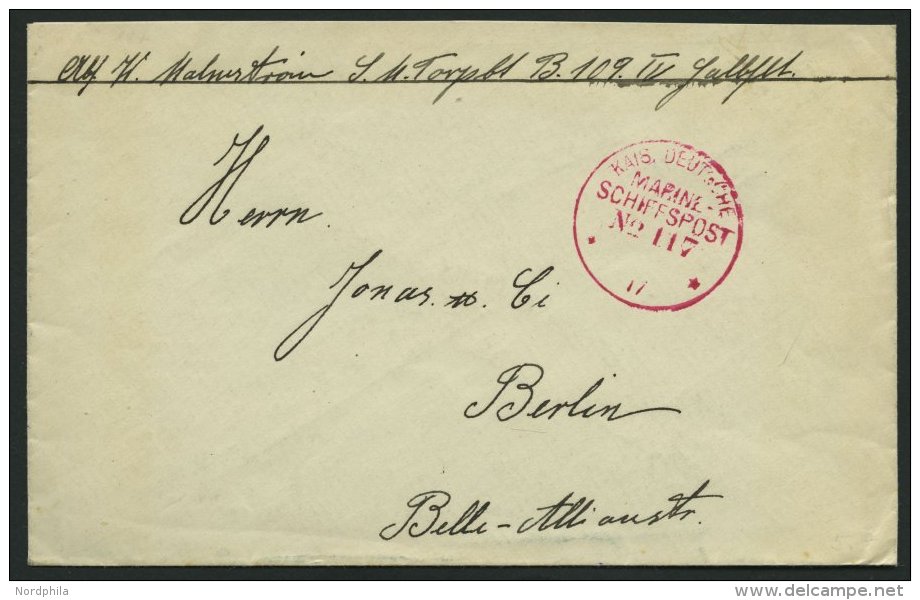 Abs. K. Malmström S. M. Torpbt B. 109. IV Halbflt.
KAIS. DEUTSCHE
MARINE-
SCHIFFSPOST
No 117
17
Herrn
Jonas. u. Ci
Berlin
Belle-Allianstr.
Nordphila
delcampe.net